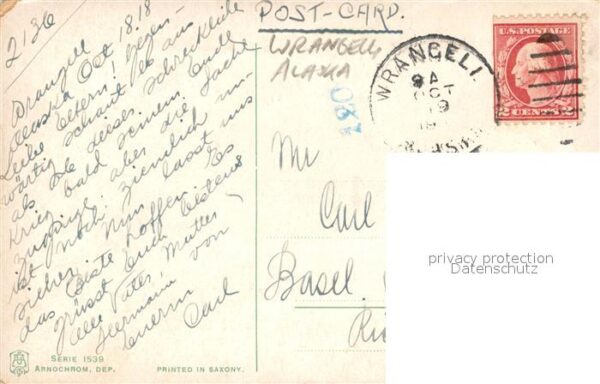 2136
POST-CARD.
WRANGELL
ALASKA
Wrangell
Alaska Oct 18. 18
Liebe Eltern! Gegen-
wärtig schaut es aus
als ob dieser schreckliche
Krieg bald seinem Ende
zuginge, aber die Sache
ist noch ziemlich un-
sicher. Nun lasst uns
das Beste hoffen. Es
grüsst Euch bestens
Vater, Mutter
Hermann von
Eurem Carl
WRANGELL
9 A
OCT
19
U.S. POSTAGE
2 CENTS 2
Mr
Carl
Basel.
privacy protection
Datenschutz
SERIE 1539
ARNOCHROM, DEP.
PRINTED IN SAXONY.